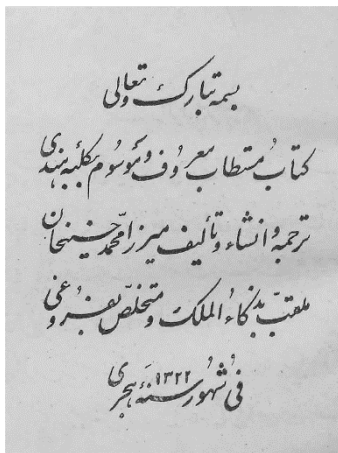 بسمه تبارک و تعالی
کتاب مُستطاب معروف و موسُوم بکلبهٔ هندی
ترجمه و انشاء و تألیف میرزا محمّد حسینخان
ملقب بذکاءُ الملک و متخلّص بفروغی
فی شُهُور سَنَهٔ ۱۳۲۲ هجری